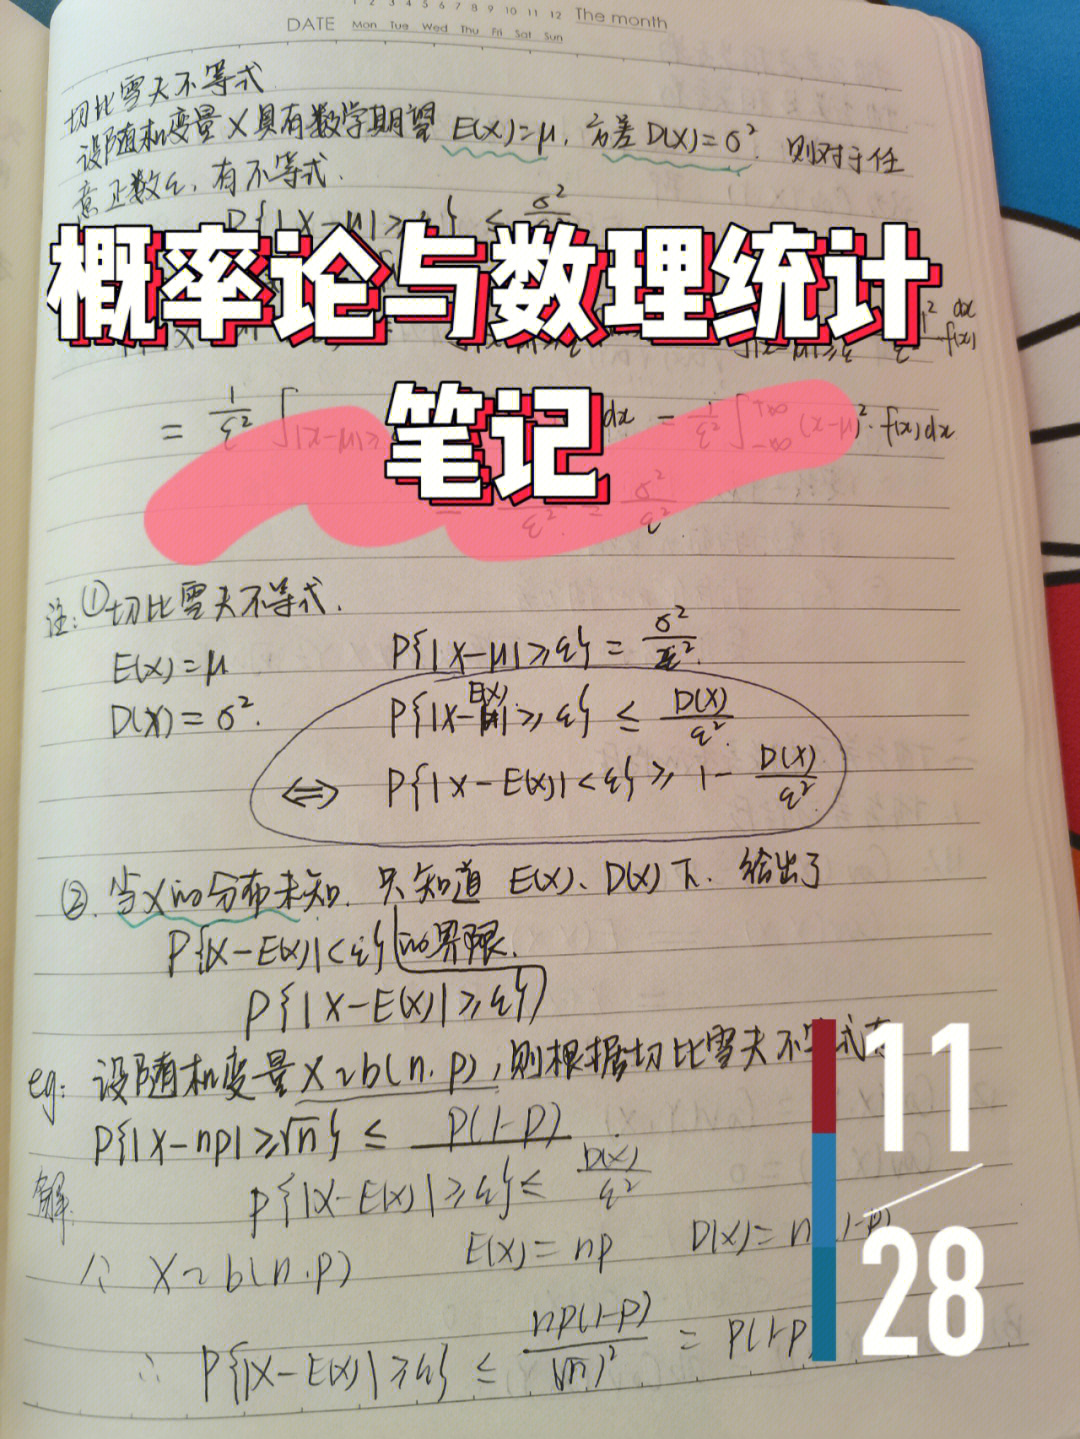 1 2 3 4 5 6 7 8 9 10 11 12 The month
DATE Mon Tue Wed Thu Fri Sat Sun
切比雪夫不等式
设随机变量X具有数学期望 E(X)=μ, 方差 D(X)=σ². 则对于任
意正数ε, 有不等式.
P{|X-μ|≥ε} ≤ σ²
概率论与数理统计
= 1/ε² ∫|x-μ|≥ dx = 1/ε² ∫-∞+∞ (x-μ)²·f(x)dx
笔记
ε² = σ²/ε²
注:①切比雪夫不等式.
E(X)=μ P{|X-μ|≥ε} = σ²/ε².
D(X)=σ². P{|X-E(X)|≥ε} ≤ D(X)/ε².
⇔ P{|X-E(X)|<ε}≥ 1- D(X)/ε²
②.当X的分布未知. 只知道 E(X)、D(X)下. 给出了
P{|X-E(X)|<ε}的界限.
P{|X-E(X)|≥ε}
eg: 设随机变量X~b(n.p),则根据切比雪夫不等式有
P{|X-np|≥√n} ≤ p(1-p)
解. P{|X-E(X)|≥ε}≤ D(X)/ε²
∵ X~b(n.p) E(X)=np D(X)=n(1-p)
∴ P{|X-E(X)|≥ε} ≤ np(1-p)/(√n)² = p(1-p
11
28